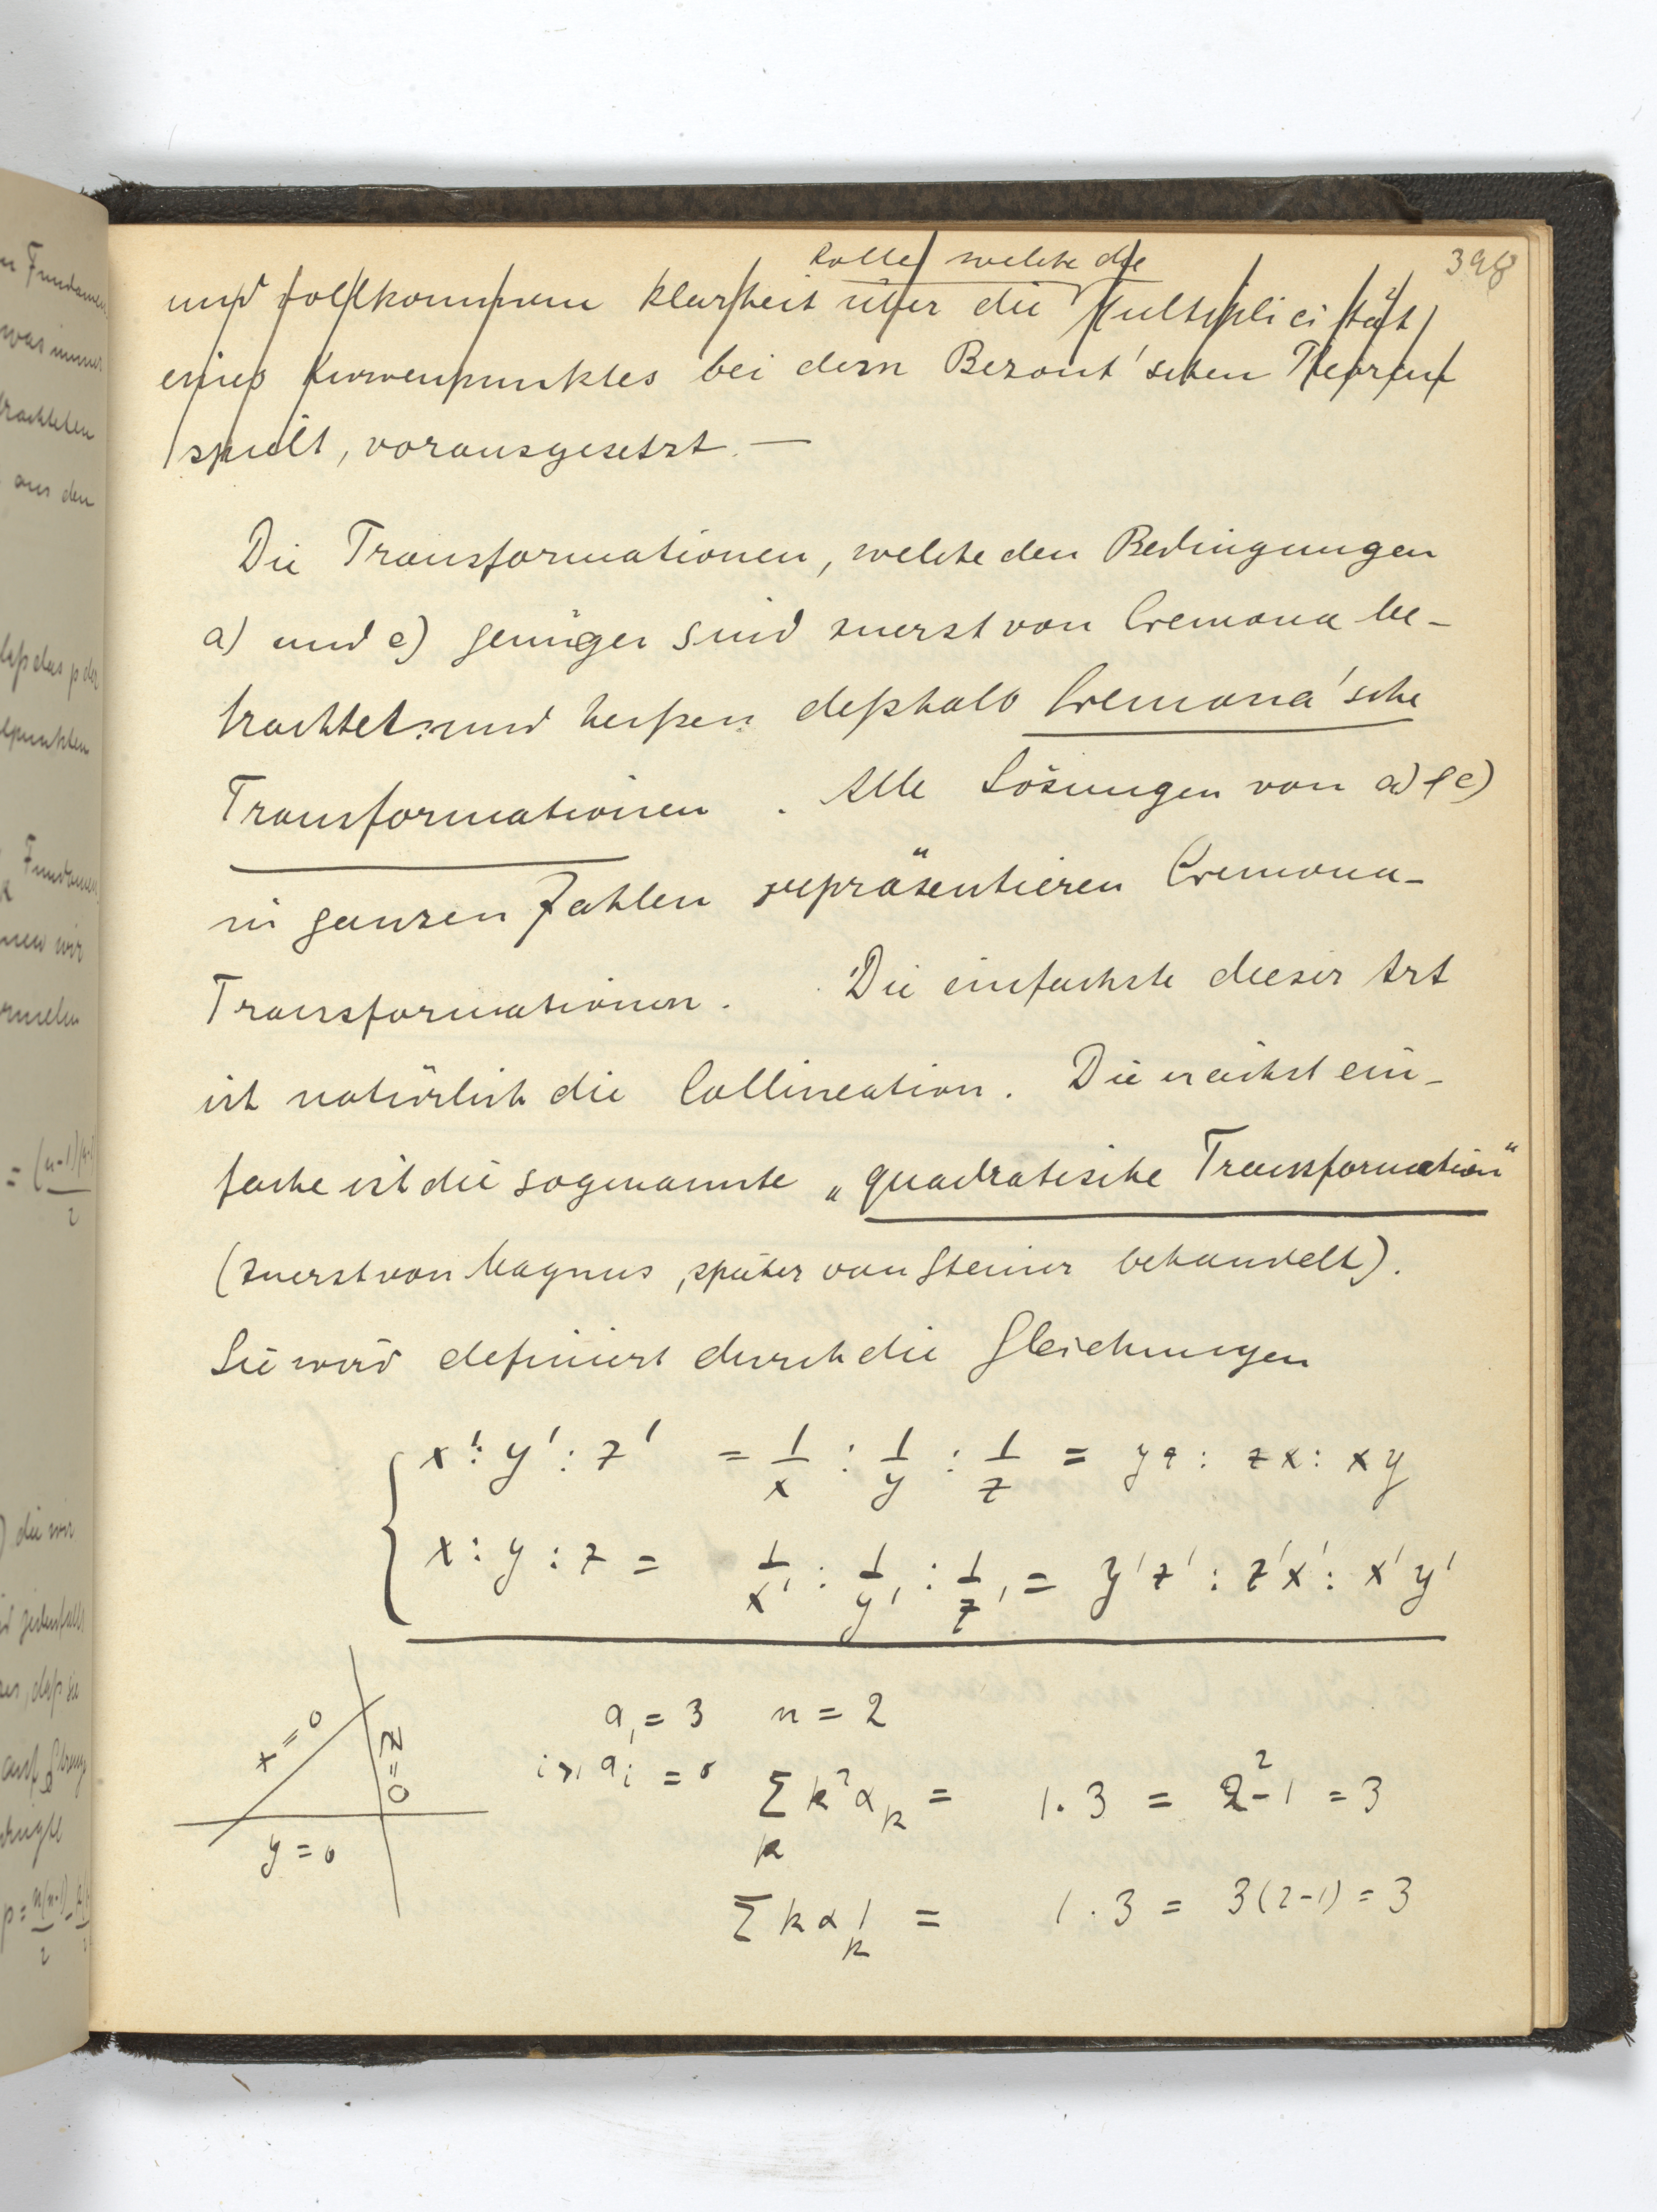 398
Rolle, welche die
und vollkommene Klarheit über die Multiplicität
eines Kurvenpunktes bei dem Bezout'schen Theorem
spielt, vorausgesetzt. —
Die Transformationen, welche den Bedingungen
a) und e) genügen sind zuerst von Cremona be-
trachtet und heißen deßhalb Cremona'sche
Transformationen. Alle Lösungen von a) & e)
in ganzen Zahlen repräsentieren Cremona-
Transformationen. Die einfachste dieser Art
ist natürlich die Collineation. Die nächst ein-
fache ist die sogenannte „quadratische Transformation"
(zuerst von Magnus, später von Steiner behandelt).
Sie wird definiert durch die Gleichungen
x' : y' : z' = 1/x : 1/y : 1/z = yz : zx : xy
x : y : z = 1/x' : 1/y' : 1/z' = y'z' : z'x' : x'y'
x = 0
z = 0
y = 0
α₁ = 3 n = 2
i>1 αᵢ = 0
∑ₖ k²αₖ = 1 . 3 = 2² - 1 = 3
∑ kαₖ = 1 . 3 = 3(2-1) = 3